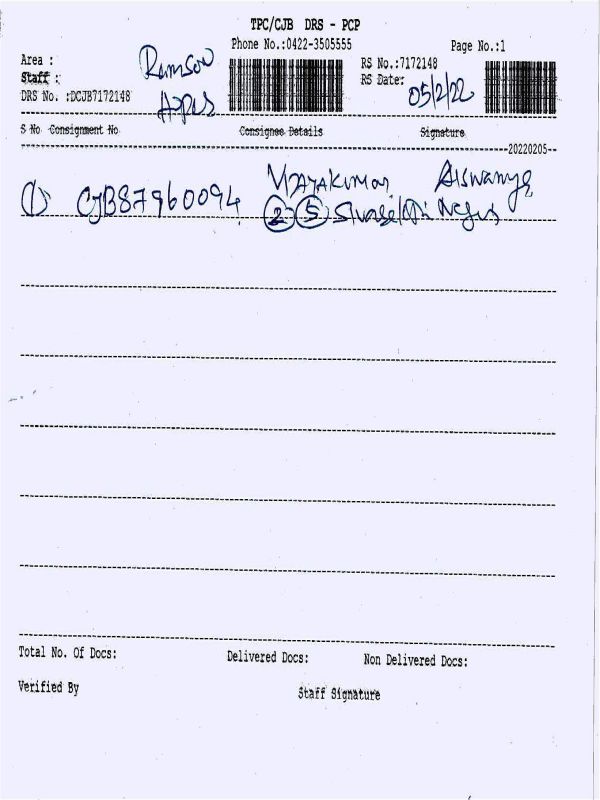 TPC/CJB DRS - PCP
Phone No.:0422-3505555
Page No.:1
Area :
Ramson
RS No.:7172148
Staff :
RS Date: 05/2/22
DRS No. :DCJB7172148
S No Consignment No Consignee Details Signature
20220205
① CJB87960094 Vijayakumar Aiswarya
② ⑤
Total No. Of Docs: Delivered Docs: Non Delivered Docs:
Verified By Staff Signature